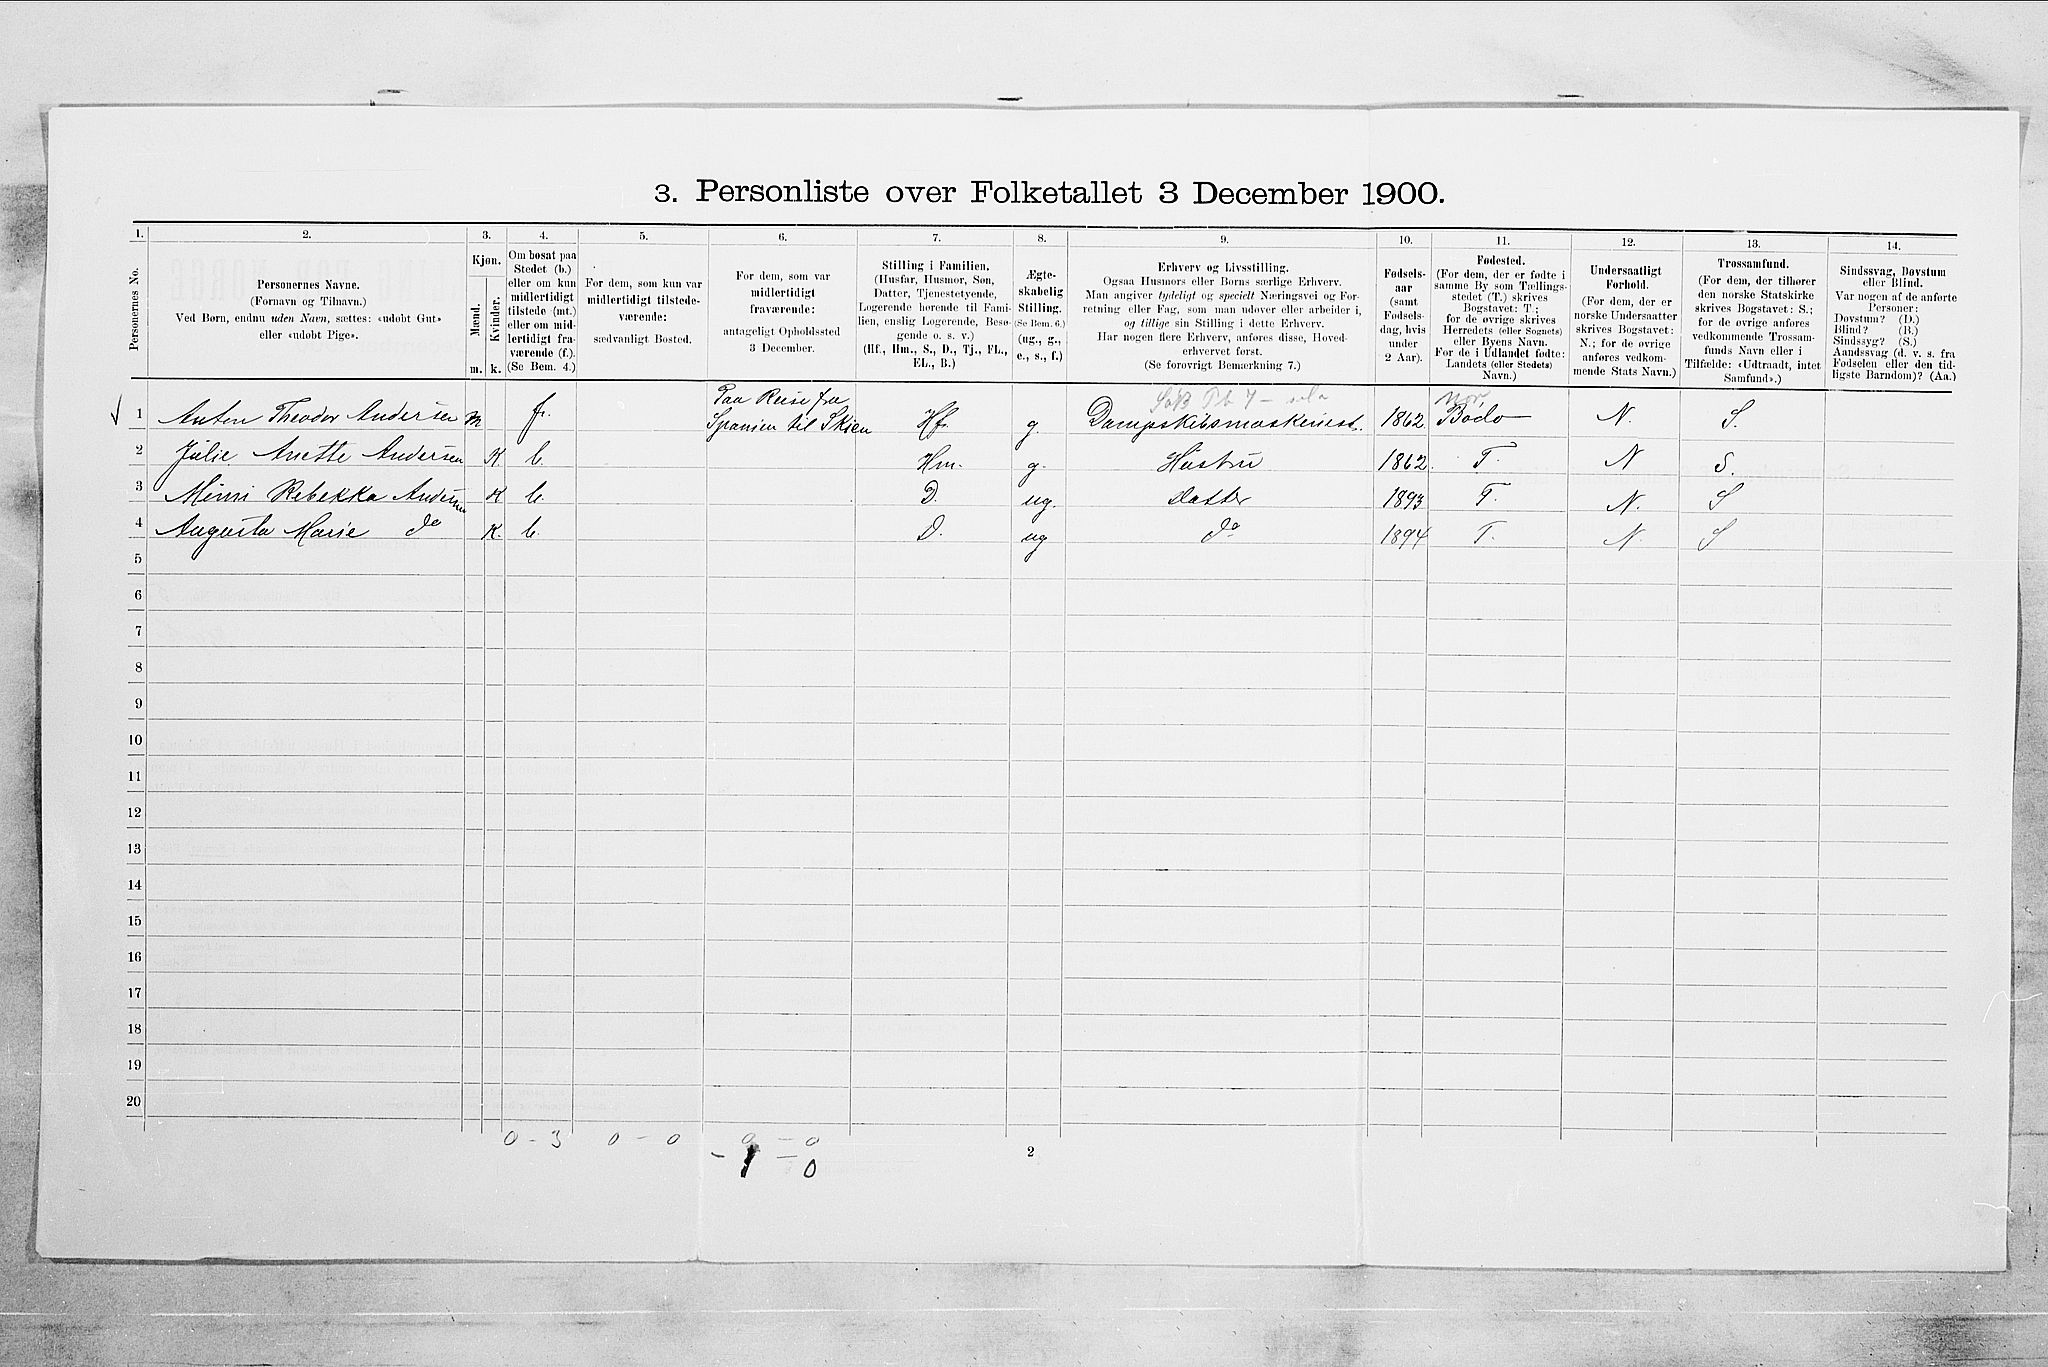 3. Personliste over Folketallet 3 December 1900.
1. 2. 3. 4. 5. 6. 7. 8. 9. 10. 11. 12. 13. 14.
Personernes No.
Personernes Navne.
(Fornavn og Tilnavn.)
Ved Børn, endnu uden Navn, sættes: «udøbt Gut»
eller «udøbt Pige».
Kjøn.
Mænd.
Kvinder.
m. k.
Om bosat paa
Stedet (b.)
eller om kun
midlertidigt
tilstede (mt.)
eller om mid-
lertidigt fra-
værende (f.).
(Se Bem. 4.)
For dem, som kun var
midlertidigt tilstede-
værende:
sædvanligt Bosted.
For dem, som var
midlertidigt
fraværende:
antageligt Opholdssted
3 December.
Stilling i Familien.
(Husfar, Husmor, Søn,
Datter, Tjenestetyende,
Logerende hørende til Fami-
lien, enslig Logerende, Besø-
gende o. s. v.)
(Hf., Hm., S., D., Tj., FL.,
EL., B.)
Ægte-
skabelig
Stilling.
(Se Bem. 6.)
(ug., g.,
e., s., f.)
Erhverv og Livsstilling.
Ogsaa Husmors eller Børns særlige Erhverv.
Man angiver tydeligt og specielt Næringsvei og For-
retning eller Fag, som man udøver eller arbeider i,
og tillige sin Stilling i dette Erhverv.
Har nogen flere Erhverv, anføres disse, Hoved-
erhvervet først.
(Se forøvrigt Bemærkning 7.)
Fødsels-
aar
(samt
Fødsels-
dag, hvis
under
2 Aar).
Fødested.
(For dem, der er fødte i
samme By som Tællings-
stedet (T.) skrives
Bogstavet: T.;
for de øvrige skrives
Herredets (eller Sognets)
eller Byens Navn.
For de i Udlandet fødte:
Landets (eller Stedets)
Navn.)
Undersaatligt
Forhold.
(For dem, der er
norske Undersaatter
skrives Bogstavet:
N.; for de øvrige
anføres vedkom-
mende Stats Navn.)
Trossamfund.
(For dem, der tilhører
den norske Statskirke
skrives Bogstavet: S.;
for de øvrige anføres
vedkommende Trossam-
funds Navn eller i
Tilfælde: «Udtraadt, intet
Samfund».)
Sindssvag, Døvstum
eller Blind.
Var nogen af de anførte
Personer:
Døvstum? (D.)
Blind? (B.)
Sindssyg? (S.)
Aandssvag (d. v. s. fra
Fødselen eller den tid-
ligste Barndom)? (Aa.)
1 Anton Theodor Andersen M f. Paa Reise fra
Spanien til Skien Hf. g. Dampskibsmaskinist. 1862. Nor. Bodø N. S.
2 Julie Anette Andersen K b. Hm. g. Hustru 1862. T. N S.
3 Mimi Rebekka Andersen K b. D. ug. Datter 1893 T. N. S
4 Augusta Marie do K. b. D. ug do 1894 T. N. S
5
6
7
8
9
10
11
12
13
14
15
16
17
18
19
20
0 - 3 0 - 0 0 - 0
- 1 - 0
2